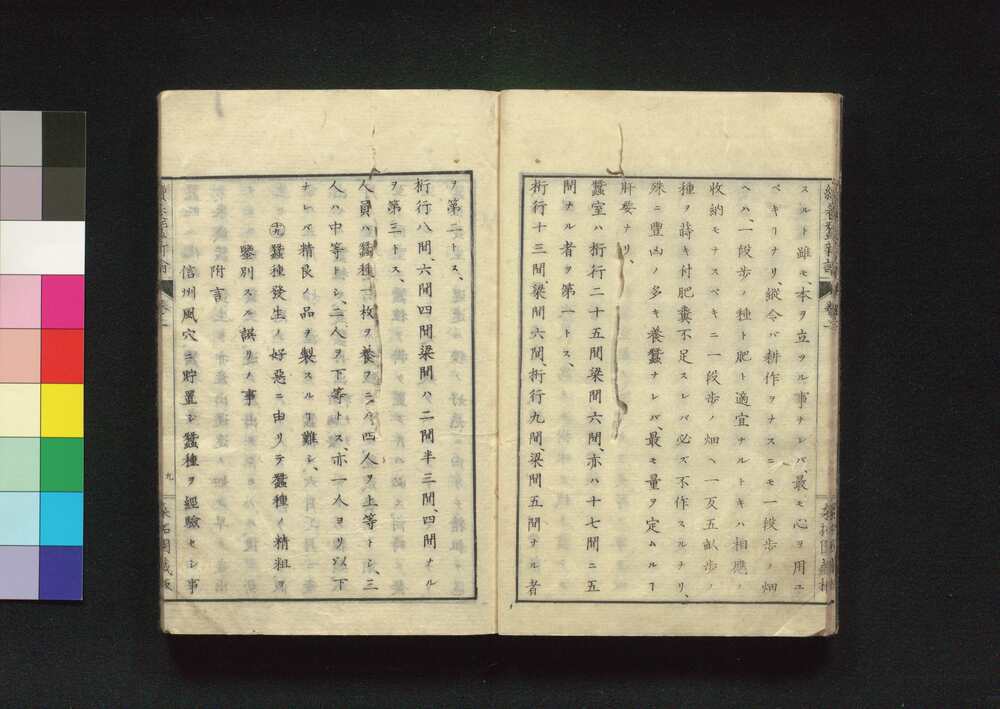 スルト雖モ、本ヲ立ツル事ナレバ、最モ心ヲ用ユ
ベキリナリ、縦令バ耕作ヲナスニモ一段歩ノ畑
ヘハ、一段歩ノ種ト肥ト適宜ナルトキハ相應ノ
收納モナスベキニ一段歩ノ畑ヘ一反五畝歩ノ
種ヲ蒔キ付肥糞不足スレバ必ズ不作スルナリ、
殊ニ豊凶ノ多キ養蚕ナレバ、最モ量ヲ定ムルヿ
肝要ナリ、
蠶室ハ桁行二十五間梁間六間、亦ハ十七間ニ五
間ナル者ヲ第一トス、
桁行十三間、梁間六間、桁行九間、梁間五間ナル者
ヲ第二トス、
桁行八間、六間四間梁間ハ二間半三間、四間ナル
ヲ第三トス、
人員ハ蠶種百枚ヲ養フニハ四人ヲ上等トシ、三
人ハ中等トシ、二人ヲ下等トス、亦一人ヨリ以下
ナレバ精良ノ品ヲ製スルヿ難シ、
㊈蠶種發生ノ好惡ニ由リテ蠶種ノ精粗ヲ
鑒別スル誤リノ事
附言
信州風穴ニ貯置シ蠶種ヲ經驗セシ事
九